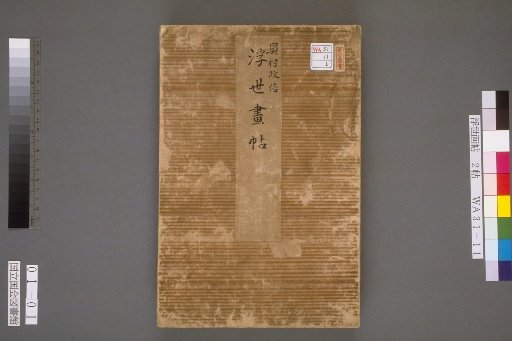 奥村政信
浮世畫帖
WA 31
11
浮世画帖　2帖　WA31-11
01-01
国立国会図書館